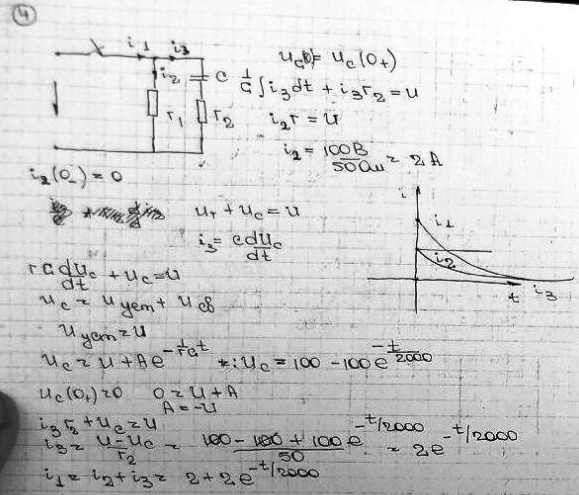 4
i₁ i₃
i₂ C
r₁ r₂
u_c(0) = u_c(0₊)
1/C ∫i₃dt + i₃r₂ = u
i₂r = u
i₂ = 100В/50Ом = 2 А
i₂(0_) = 0
u_r + u_c = u
i₃ = c du_c/dt
i
i₁
i₂
t i₃
rC du_c/dt + u_c = u
u_c = u_уст + u_св
u_уст = u
u_c = u + Ae^(-1/rC t) u_c = 100 - 100e^(-t/2000)
u_c(0₊) = 0 0 = u + A
A = -u
i₃r₂ + u_c = u
i₃ = (u - u_c)/r₂ = (100 - 100 + 100e^(-t/2000))/50 = 2e^(-t/2000)
i₁ = i₂ + i₃ = 2 + 2e^(-t/2000)